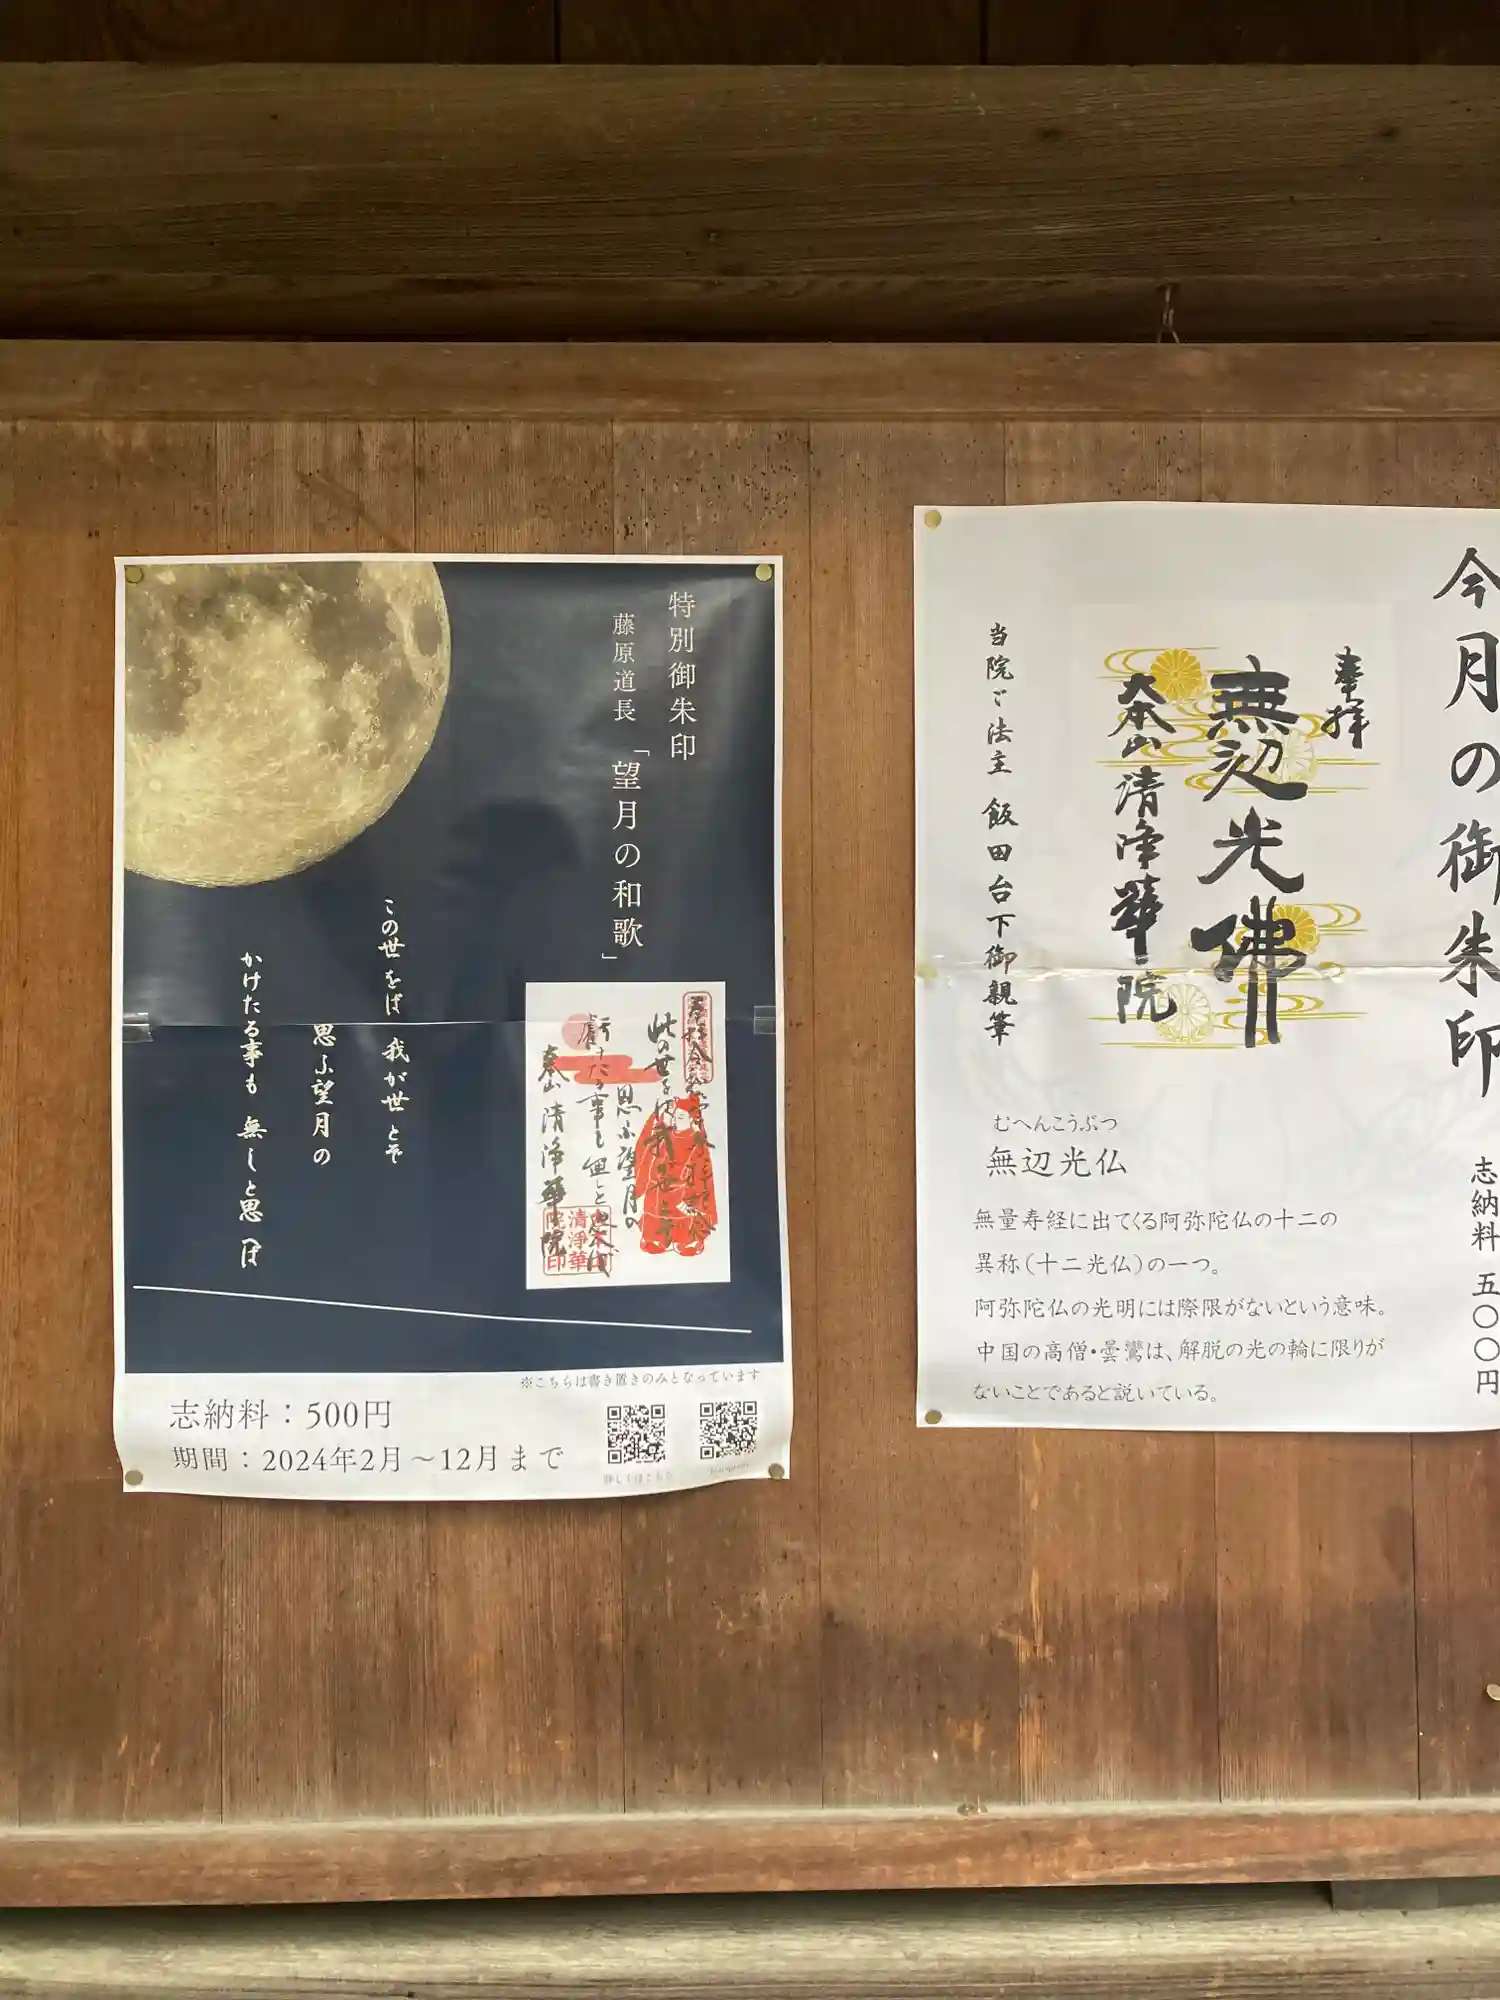 特別御朱印
藤原道長「望月の和歌」
この世をば 我が世とぞ
思ふ望月の
かけたる事も 無しと思へば
奉拝
此の世をば我が世とぞ
思ふ望月の
虧けたる事も無しと思へば
大本山 清浄華院
※こちらは書き置きのみとなっています
志納料：500円
期間：2024年2月～12月まで
詳しくはこちら
Instagram
今月の御朱印
志納料 五〇〇円
奉拝
無辺光佛
大本山 清浄華院
当院ご法主 飯田台下御親筆
むへんこうぶつ
無辺光仏
無量寿経に出てくる阿弥陀仏の十二の
異称（十二光仏）の一つ。
阿弥陀仏の光明には際限がないという意味。
中国の高僧・曇鸞は、解脱の光の輪に限りが
ないことであると説いている。